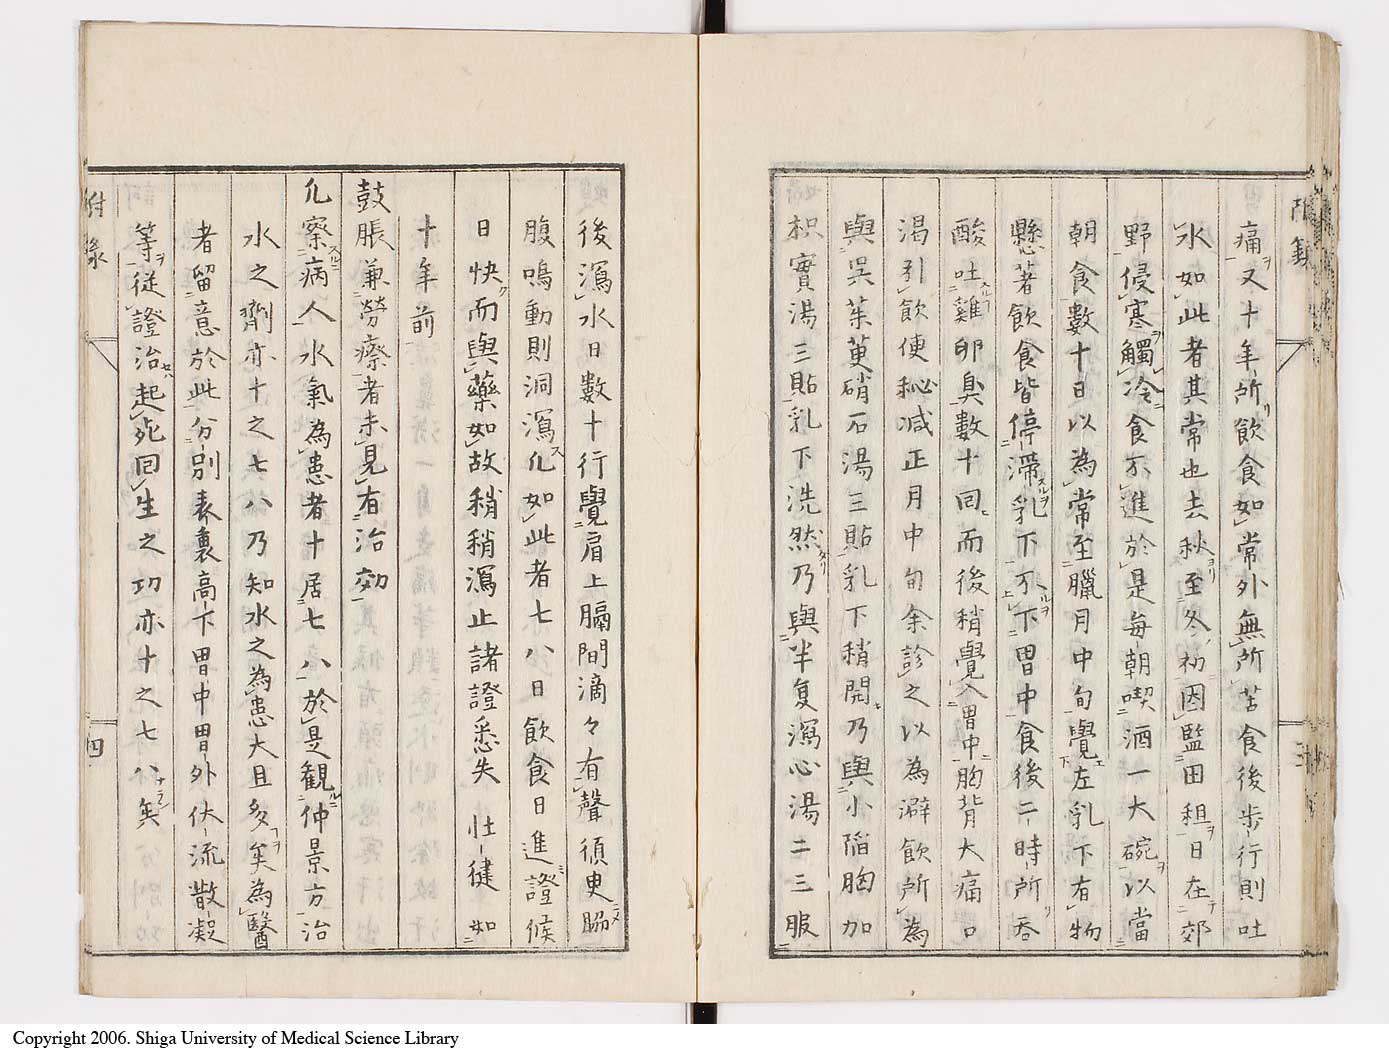 附錄
痛又十年所飲食如常外無所苦食後步行則吐
水如此者其常也去秋至冬初因監田租日在郊
野侵寒觸冷食不進於是每朝喫酒一大碗以當
朝食數十日以為常至臘月中旬覺左乳下有物
懸著飲食皆停滯乳下不下胃中食後二時所吞
酸吐雞卵臭數十回而後稍覺入胃中胸背大痛口
渴引飲便秘減正月中旬余診之以為澼飲所為
與吳茱茰硝石湯三貼乳下稍開乃與小陷胸加
枳實湯三貼乳下洗然乃與半复瀉心湯二三服
後瀉水日數十行覺眉上膈間滴々有聲須臾脇
腹鳴動則洞瀉凢如此者七八日飲食日進證候
日快而與藥如故稍稍瀉止諸證悉失壯健如
十年前
鼓脹兼勞瘵者未見有治効
凢察病人水氣為患者十居七八於是觀仲景方治
水之劑亦十之七八乃知水之為患大且多矣為醫
者留意於此分別表裏高卞胃中胃外伏流散凝
等従證治起死回生之功亦十之七八矣
附錄
四
Copyright 2006. Shiga University of Medical Science Library